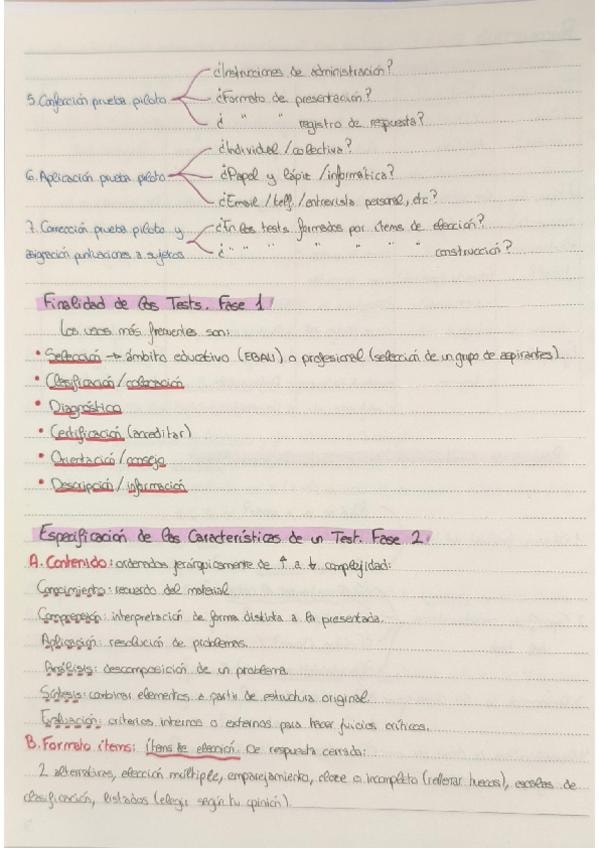 ¿Instrucciones de administración?
5. Confección prueba piloto ¿Formato de presentación?
¿ " " registro de respuesta?
¿Individual / colectiva?
6. Aplicación prueba piloto ¿Papel y lápiz / informática?
¿Email / telf. / entrevista personal, etc?
7. Corrección prueba piloto y ¿En los tests formados por ítems de elección?
asignación puntuaciones a sujetos ¿ " " " " " " " construcción?
Finalidad de los Tests. Fase 1
Los usos más frecuentes son:
• Selección → ámbito educativo (EBAU) o profesional (selección de un grupo de aspirantes)
• Clasificación / colocación
• Diagnóstico
• Certificación (acreditar)
• Orientación / consejo
• Descripción / información
Especificación de las Características de un Test. Fase 2.
A. Contenido: ordenados jerárquicamente de ↑ a ↓ complejidad:
Conocimiento: recuerdo del material.
Comprensión: interpretación de forma distinta a la presentada.
Aplicación: resolución de problemas.
Análisis: descomposición de un problema.
Síntesis: combinar elementos a partir de estructura original.
Evaluación: criterios internos o externos para hacer juicios críticos.
B. Formato ítems: Ítems de elección. De respuesta cerrada:
2 alternativas, elección múltiple, emparejamiento, cloze o incompleto (rellenar huecos), escalas de
clasificación, listados (elegir según tu opinión).